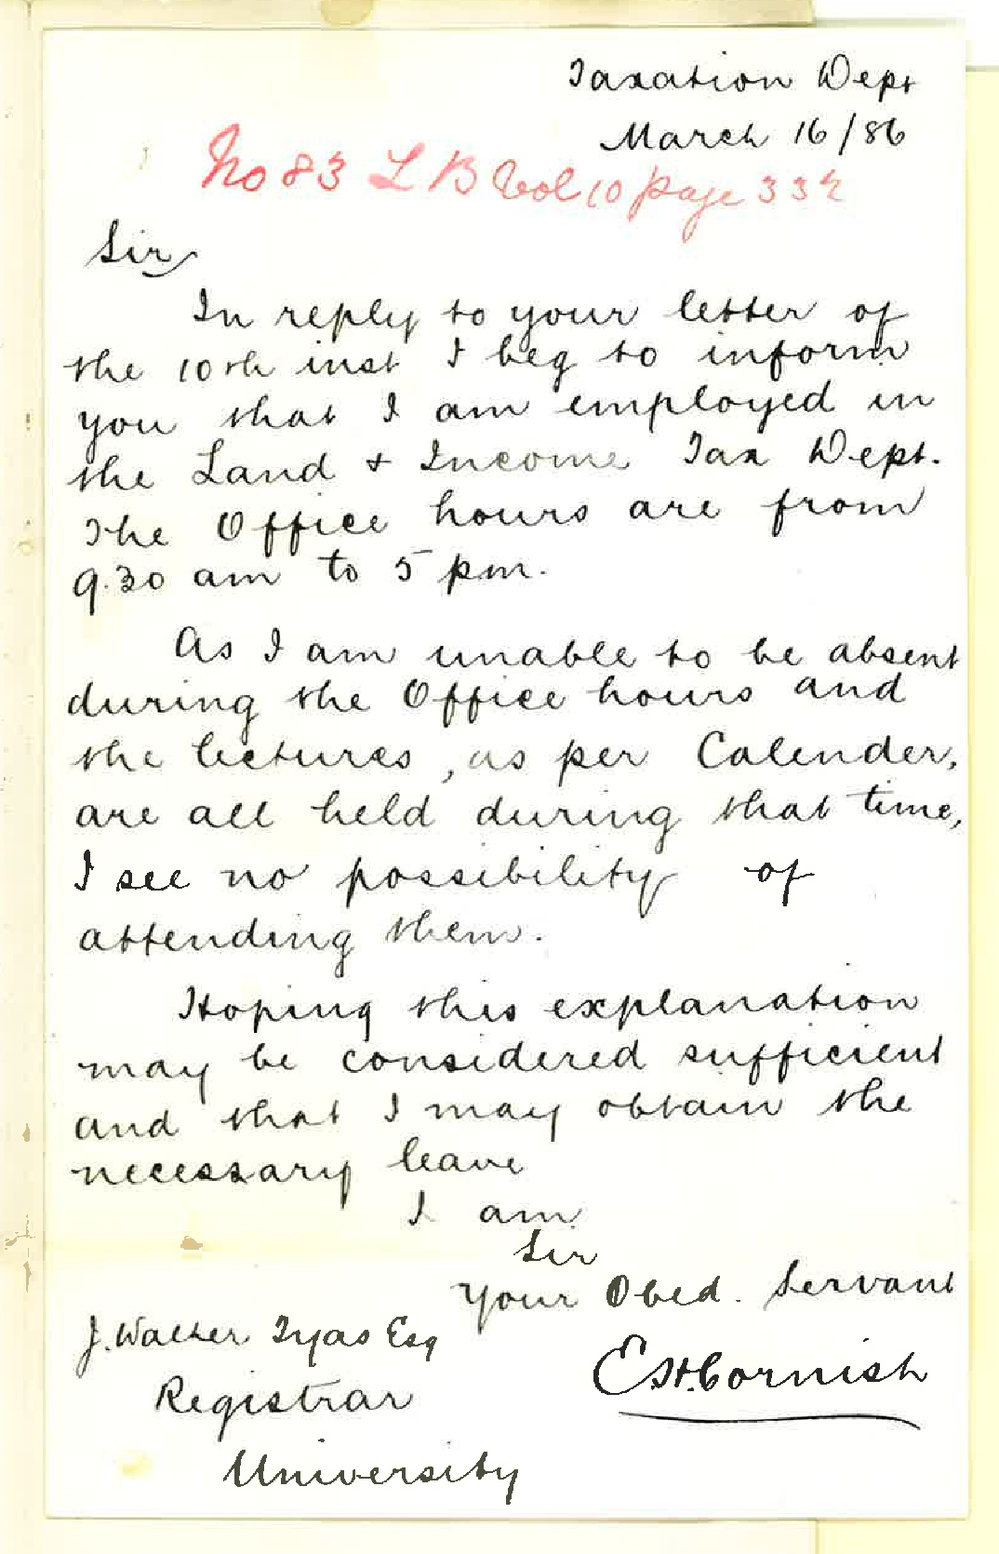 Taxation Dept
March 16/86
No 83 L B Vol 10 page 332
Sir
In reply to your letter of
the 10th inst I beg to inform
you that I am employed in
the Land & Income Tax Dept.
The Office hours are from
9.30 am to 5 pm.
As I am unable to be absent
during the Office hours and
the lectures, as per Calender,
are all held during that time,
I see no possibility of
attending them.
Hoping this explanation
may be considered sufficient
and that I may obtain the
necessary leave
I am
Sir
Your Obed. Servant
J. Walter Tyas Esq
E.H. Cornish
Registrar
University